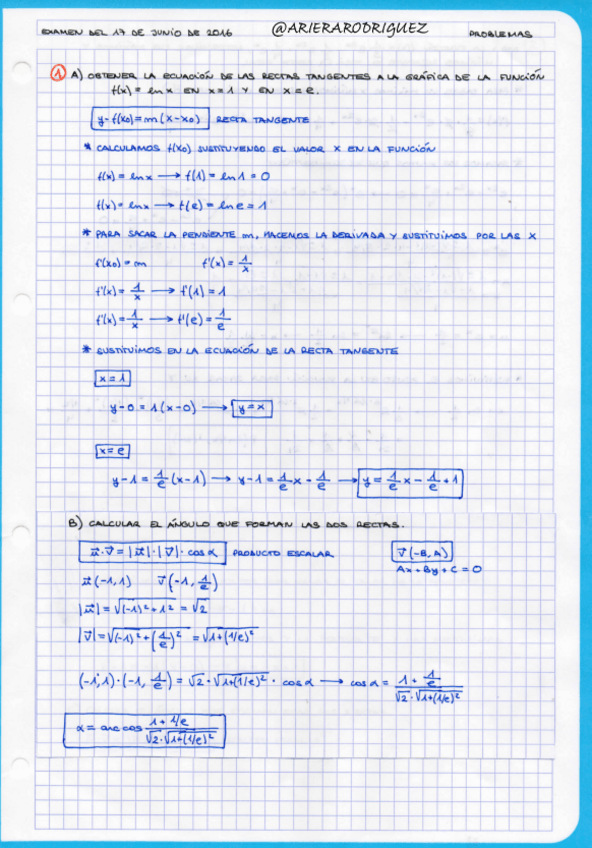 EXAMEN DEL 17 DE JUNIO DE 2016 @ARIERARODRIGUEZ PROBLEMAS
① A) OBTENER LA ECUACIÓN DE LAS RECTAS TANGENTES A LA GRÁFICA DE LA FUNCIÓN
f(x) = ln x EN x = 1 Y EN x = e.
y - f(x₀) = m (x - x₀) RECTA TANGENTE
* CALCULAMOS f(x₀) SUSTITUYENDO EL VALOR X EN LA FUNCIÓN
f(x) = ln x → f(1) = ln 1 = 0
f(x) = ln x → f(e) = ln e = 1
* PARA SACAR LA PENDIENTE m, HACEMOS LA DERIVADA Y SUSTITUIMOS POR LAS X
f'(x₀) = m f'(x) = 1/x
f'(x) = 1/x → f'(1) = 1
f'(x) = 1/x → f'(e) = 1/e
* SUSTITUIMOS EN LA ECUACIÓN DE LA RECTA TANGENTE
x = 1
y - 0 = 1 (x - 0) → y = x
x = e
y - 1 = 1/e (x - 1) → y - 1 = 1/e x - 1/e → y = 1/e x - 1/e + 1
B) CALCULAR EL ÁNGULO QUE FORMAN LAS DOS RECTAS.
u⃗ · v⃗ = |u⃗| · |v⃗| · cos α PRODUCTO ESCALAR v⃗ (-B, A)
Ax + By + C = 0
u⃗ (-1, 1) v⃗ (-1, 1/e)
|u⃗| = √((-1)² + 1²) = √2
|v⃗| = √((-1)² + (1/e)²) = √(1 + (1/e)²)
(-1, 1) · (-1, 1/e) = √2 · √(1+(1/e)²) · cos α → cos α = (1 + 1/e)/(√2 · √(1+(1/e)²))
α = arc cos (1 + 1/e)/(√2 · √(1+(1/e)²))